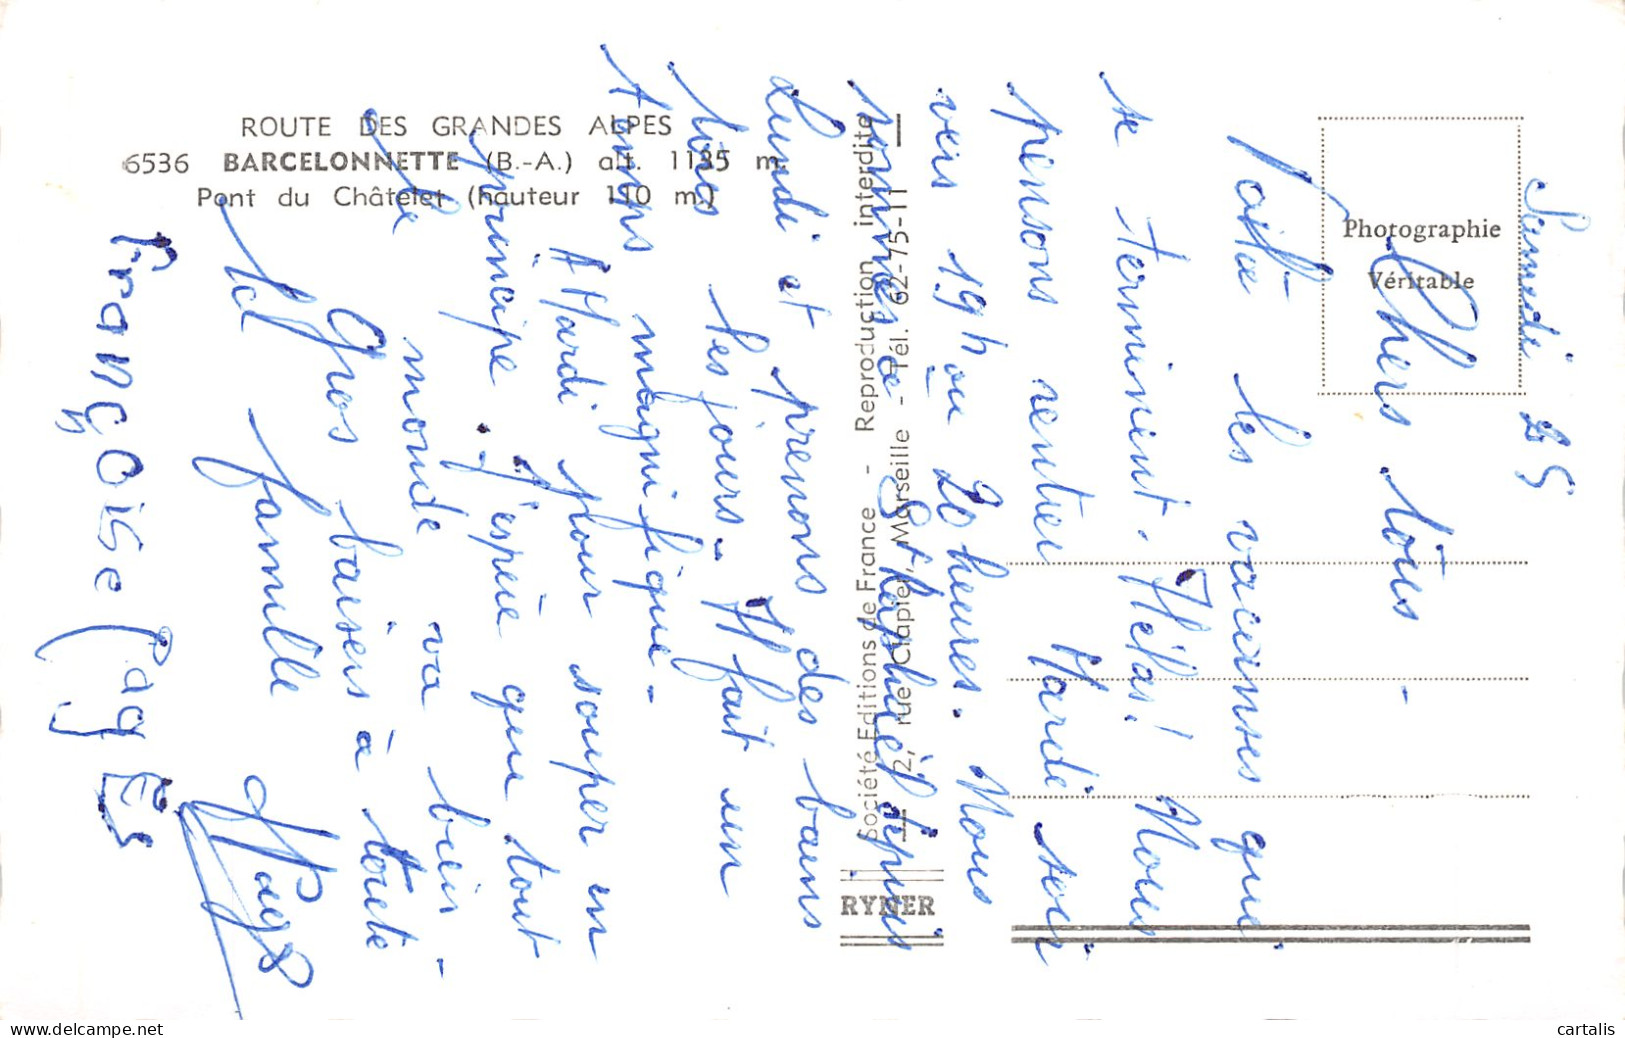 ROUTE DES GRANDES ALPES
6536 BARCELONNETTE (B.-A.) alt. 1135 m.
Pont du Châtelet (hauteur 110 m.)
Société Editions de France - Reproduction interdite
2, rue Clapier, Marseille - Tél. 62-75-11
RYNER
Photographie
Véritable
Samedi 25
Chers tous -
Voilà les vacances qui
se terminent. Hélas! Nous
pensons rentrer Mardi soir
vers 19h ou 20 heures. Nous
sommes à St Raphaël depuis
Lundi et prenons des bains
tous les jours - Il fait un
temps magnifique -
A Mardi pour souper en
principe. J'espère que tout
le monde va bien -
Gros baisers à toute
la famille
Françoise (Pages
delcampe.net
cartalis